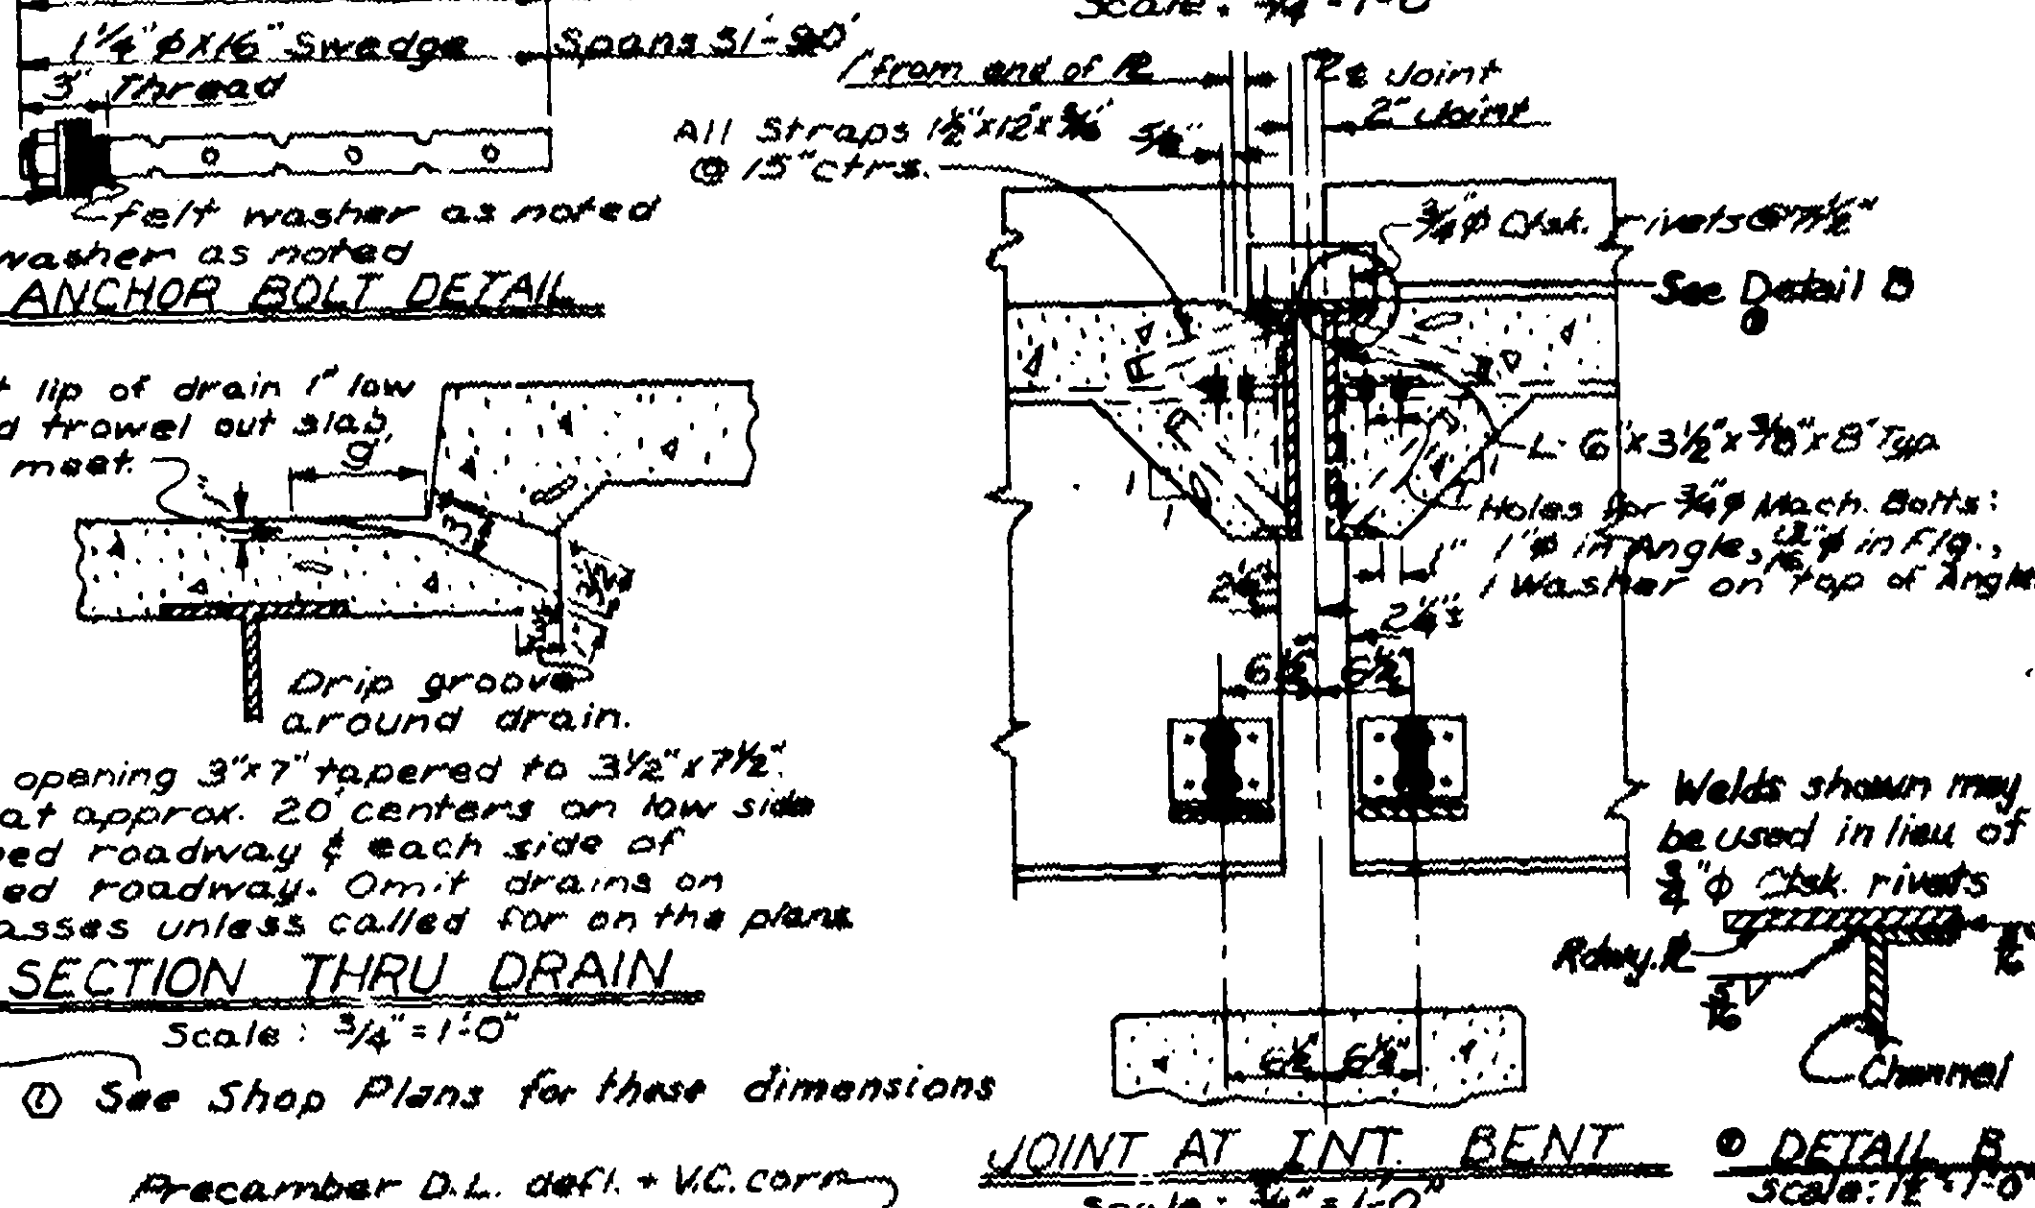 Scale: 3/4" = 1'-0"
1 1/4" φ X 16" Swedge
Spans 51'-90'
3" Thread
felt washer as noted
washer as noted
ANCHOR BOLT DETAIL
lip of drain 1" low
trowel out slab
meet.
9"
3"
3 1/2"
Drip groove
around drain.
opening 3" x 7" tapered to 3 1/2" x 7 1/2".
at approx. 20' centers on low side
roadway & each side of
roadway. Omit drains on
unless called for on the plans
SECTION THRU DRAIN
Scale: 3/4" = 1'-0"
① See Shop Plans for these dimensions
Precamber D.L. defl. + V.C. corr.
1" from end of PL
Joint
2" Joint
All Straps 1 1/2" x 12" x 5/16"
@ 15" ctrs.
3/4" φ Ctsk. rivets @
See Detail B
L- 6" x 3 1/2" x 3/8" x 8" Typ.
Holes for 3/4" φ Mach. Bolts:
1" φ in Angle, φ in Flg.,
1 Washer on top of Angle
1"
1
1
1
1
2 1/4"
2 1/4"
6 1/2" 6 1/2"
6 1/2" 6 1/2"
JOINT AT INT. BENT
Scale: 3/4" = 1'-0"
Welds shown may
be used in lieu of
3/4" φ Ctsk. rivets
Rdwy. PL
5/16
Channel
DETAIL B
Scale: 1 1/2" = 1'-0"